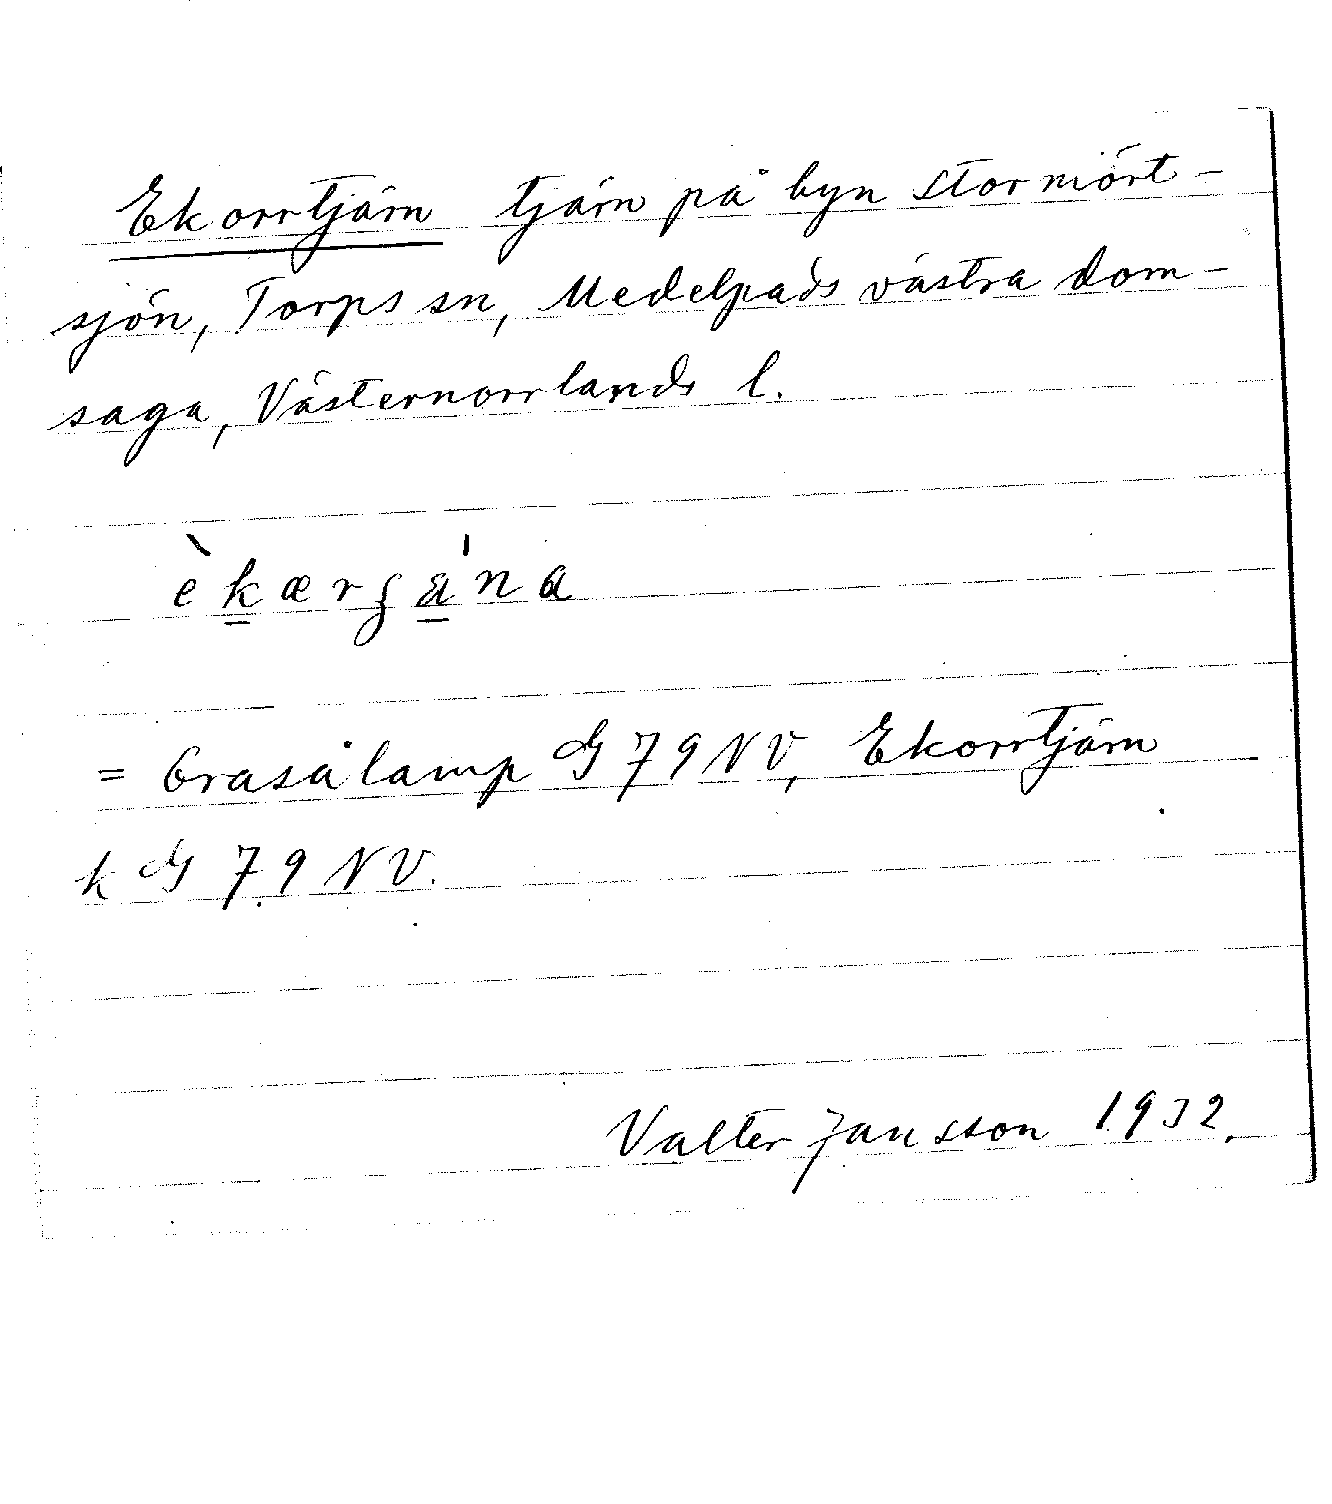 Ekorrtjärn tjärn på byn Stormört-
sjön, Torps sn, Medelpads västra dom-
saga, Västernorrlands l.
= Grasålamp G 79 NV, Ekorrtjärn
k G 79 NV.
Valter Jansson 1932.